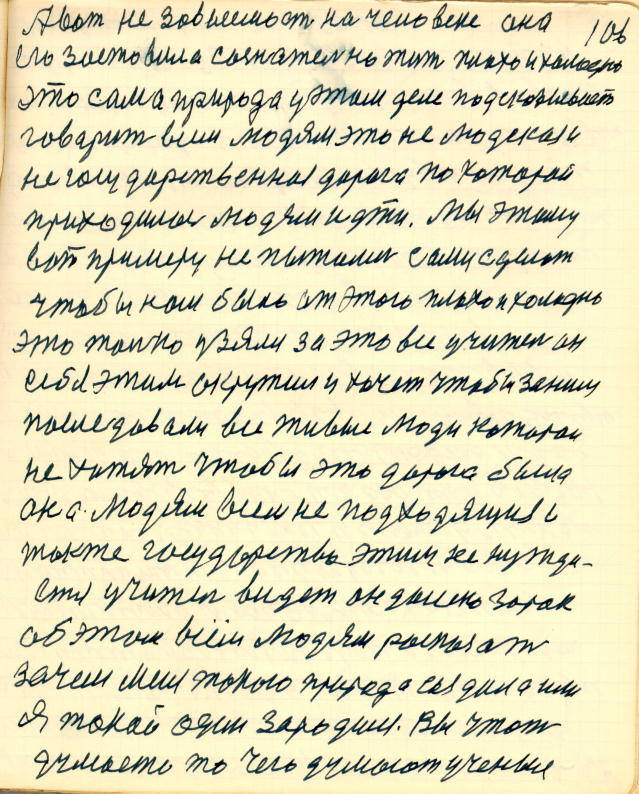 А вот не зависемост на человеке она 106
его зоставила сознателно жит плохо и холодно
это сама природа у этом деле подсказывает
говарит всем людям это не людская и
не государственная дорога по которой
приходилос людям идти. Мы этому
вот примеру не пыталис сами сделат
чтобы нам было от этого плохо и холодно
это толко узяли за это все учител он
себя этим окружил и хочет чтобы за ним
последовали все живые люди которои
не хотят чтобы это дорога была
она. Людям всем не подходящия и
также государство этим не нужда-
ется учител видет он должно
об этом всем людям росказат
зачем меня токого природа создала или
я токой один зародился. Вы чтот
думаете то чего думают ученые